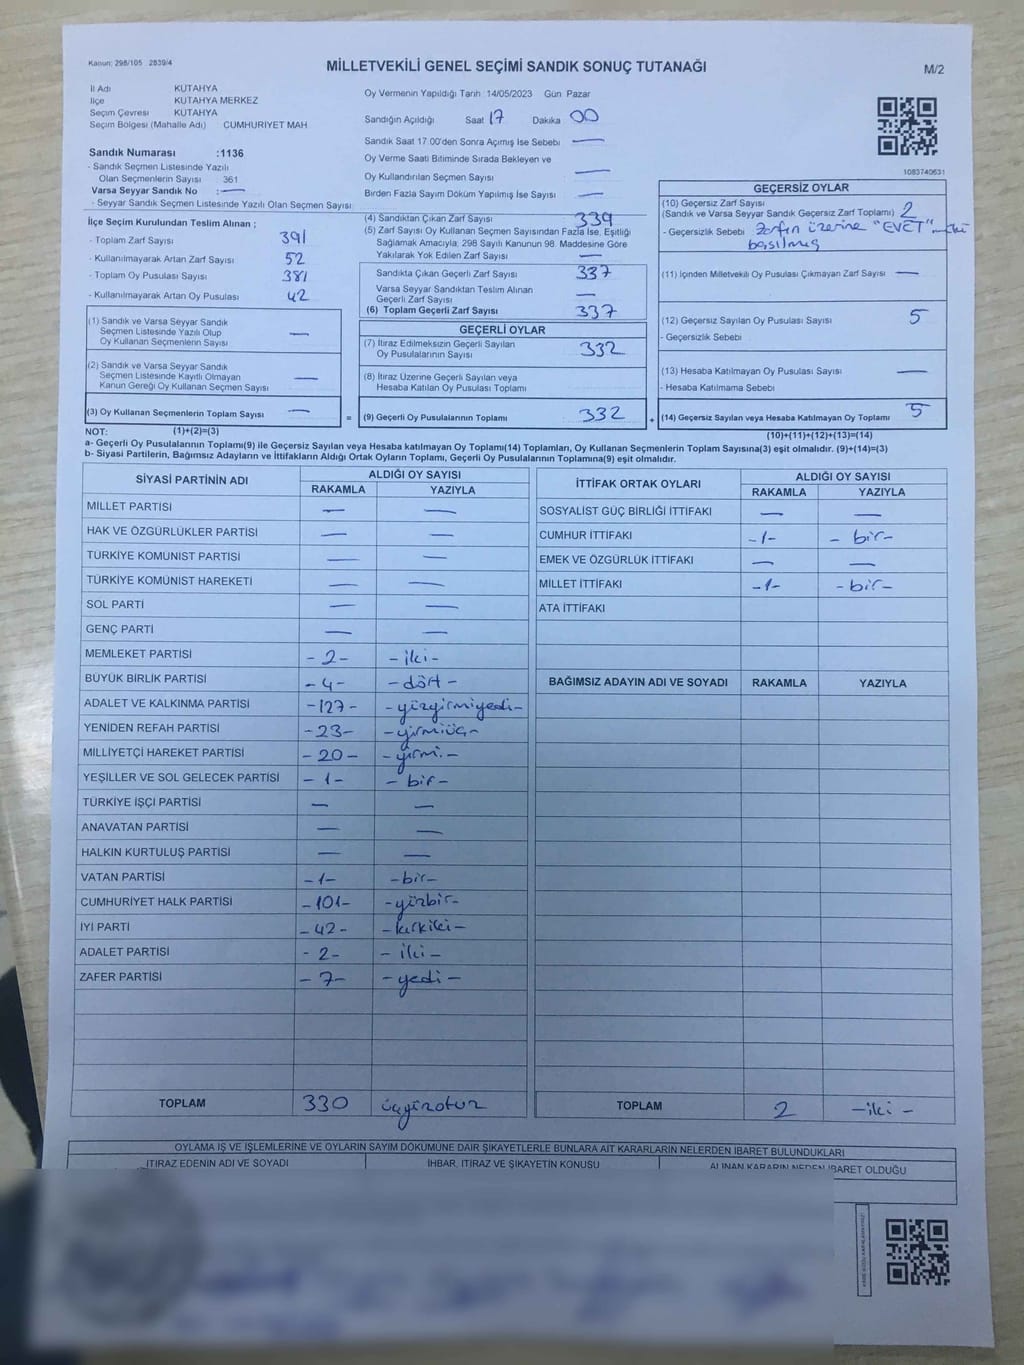 Kanun: 298/105 2839/4
MİLLETVEKİLİ GENEL SEÇİMİ SANDIK SONUÇ TUTANAĞI
M/2
İl Adı KÜTAHYA
İlçe KÜTAHYA MERKEZ
Seçim Çevresi KÜTAHYA
Seçim Bölgesi (Mahalle Adı) CUMHURİYET MAH
Sandık Numarası :1136
- Sandık Seçmen Listesinde Yazılı
Olan Seçmenlerin Sayısı : 361
Varsa Seyyar Sandık No : —
- Seyyar Sandık Seçmen Listesinde Yazılı Olan Seçmen Sayısı:
Oy Vermenin Yapıldığı Tarih :14/05/2023 Gün Pazar
Sandığın Açıldığı Saat 17 Dakika 00
Sandık Saat 17.00'den Sonra Açımış İse Sebebi —
Oy Verme Saati Bitiminde Sırada Bekleyen ve
Oy Kullandırılan Seçmen Sayısı —
Birden Fazla Sayım Döküm Yapılmış İse Sayısı —
1083740631
İlçe Seçim Kurulundan Teslim Alınan :
- Toplam Zarf Sayısı 391
- Kullanılmayarak Artan Zarf Sayısı 52
- Toplam Oy Pusulası Sayısı 381
- Kullanılmayarak Artan Oy Pusulası 42
(1) Sandık ve Varsa Seyyar Sandık
Seçmen Listesinde Yazılı Olup
Oy Kullanan Seçmenlerin Sayısı —
(2) Sandık ve Varsa Seyyar Sandık
Seçmen Listesinde Kayıtlı Olmayan
Kanun Gereği Oy Kullanan Seçmen Sayısı —
(3) Oy Kullanan Seçmenlerin Toplam Sayısı —
(1)+(2)=(3)
(4) Sandıktan Çıkan Zarf Sayısı 339
(5) Zarf Sayısı Oy Kullanan Seçmen Sayısından Fazla İse, Eşitliği
Sağlamak Amacıyla; 298 Sayılı Kanunun 98. Maddesine Göre
Yakılarak Yok Edilen Zarf Sayısı —
Sandıkta Çıkan Geçerli Zarf Sayısı 337
Varsa Seyyar Sandıktan Teslim Alınan
Geçerli Zarf Sayısı —
(6) Toplam Geçerli Zarf Sayısı 337
GEÇERLİ OYLAR
(7) İtiraz Edilmeksizin Geçerli Sayılan
Oy Pusulalarının Sayısı 332
(8) İtiraz Üzerine Geçerli Sayılan veya
Hesaba Katılan Oy Pusulası Toplamı
= (9) Geçerli Oy Pusulalarının Toplamı 332 +
GEÇERSİZ OYLAR
(10) Geçersiz Zarf Sayısı
(Sandık ve Varsa Seyyar Sandık Geçersiz Zarf Toplamı) 2
- Geçersizlik Sebebi Zarfın üzerine "EVET"
basılmış
(11) İçinden Milletvekili Oy Pusulası Çıkmayan Zarf Sayısı —
(12) Geçersiz Sayılan Oy Pusulası Sayısı 5
- Geçersizlik Sebebi
(13) Hesaba Katılmayan Oy Pusulası Sayısı —
- Hesaba Katılmama Sebebi
(14) Geçersiz Sayılan veya Hesaba Katılmayan Oy Toplamı 5
(10)+(11)+(12)+(13)=(14)
NOT:
a- Geçerli Oy Pusulalarının Toplamı(9) ile Geçersiz Sayılan veya Hesaba katılmayan Oy Toplamı(14) Toplamları, Oy Kullanan Seçmenlerin Toplam Sayısına(3) eşit olmalıdır. (9)+(14)=(3)
b- Siyasi Partilerin, Bağımsız Adayların ve İttifakların Aldığı Ortak Oyların Toplamı, Geçerli Oy Pusulalarının Toplamına(9) eşit olmalıdır.
SİYASİ PARTİNİN ADI ALDIĞI OY SAYISI
RAKAMLA YAZIYLA
MİLLET PARTİSİ — —
HAK VE ÖZGÜRLÜKLER PARTİSİ — —
TÜRKİYE KOMÜNİST PARTİSİ — —
TÜRKİYE KOMÜNİST HAREKETİ — —
SOL PARTİ — —
GENÇ PARTİ — —
MEMLEKET PARTİSİ -2- -iki-
BÜYÜK BİRLİK PARTİSİ -4- -dört-
ADALET VE KALKINMA PARTİSİ -127- -yüzyirmiyedi-
YENİDEN REFAH PARTİSİ -23- -yirmiüç-
MİLLİYETÇİ HAREKET PARTİSİ -20- -yirmi-
YEŞİLLER VE SOL GELECEK PARTİSİ -1- -bir-
TÜRKİYE İŞÇİ PARTİSİ — —
ANAVATAN PARTİSİ — —
HALKIN KURTULUŞ PARTİSİ — —
VATAN PARTİSİ -1- -bir-
CUMHURİYET HALK PARTİSİ -101- -yüzbir-
İYİ PARTİ -42- -kırkiki-
ADALET PARTİSİ -2- -iki-
ZAFER PARTİSİ -7- -yedi-
TOPLAM 330 üçyüzotuz
İTTİFAK ORTAK OYLARI ALDIĞI OY SAYISI
RAKAMLA YAZIYLA
SOSYALİST GÜÇ BİRLİĞİ İTTİFAKI — —
CUMHUR İTTİFAKI -1- -bir-
EMEK VE ÖZGÜRLÜK İTTİFAKI — —
MİLLET İTTİFAKI -1- -bir-
ATA İTTİFAKI
BAĞIMSIZ ADAYIN ADI VE SOYADI RAKAMLA YAZIYLA
TOPLAM 2 -iki-
OYLAMA İŞ VE İŞLEMLERİNE VE OYLARIN SAYIM DÖKÜMÜNE DAİR ŞİKAYETLERLE BUNLARA AİT KARARLARIN NELERDEN İBARET BULUNDUKLARI
İTİRAZ EDENİN ADI VE SOYADI İHBAR, İTİRAZ VE ŞİKAYETİN KONUSU ALINAN KARARIN NEDEN İBARET OLDUĞU